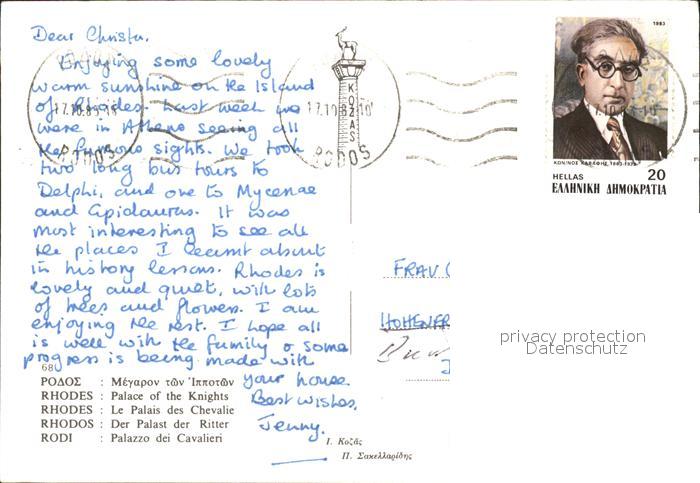 Dear Christa.
Enjoying some lovely
warm sunshine on the Island
of Rhodes. Last week we
were in Athens seeing all
the famous sights. We took
two long bus tours to
Delphi, and one to Mycenae
and Epidaurus. It was
most interesting to see all
the places I learnt about
in history lessons. Rhodes is
lovely and quiet, with lots
of trees and flowers. I am
enjoying the rest. I hope all
is well with the family & some
progress is being made with
your house.
Best wishes,
Jenny.
68
ΡΟΔΟΣ : Μέγαρον τῶν Ἱπποτῶν
RHODES : Palace of the Knights
RHODES : Le Palais des Chevalie
RHODOS : Der Palast der Ritter
RODI : Palazzo dei Cavalieri
Ι. Κοζᾶς
Π. Σακελλαρίδης
17.10.83
ΡΟDOS
1983
ΚΩΝ/ΝΟΣ ΚΑΒΑΦΗΣ 1863-1933
HELLAS 20
ΕΛΛΗΝΙΚΗ ΔΗΜΟΚΡΑΤΙΑ
FRAU
HOHENFR
privacy protection
Datenschutz